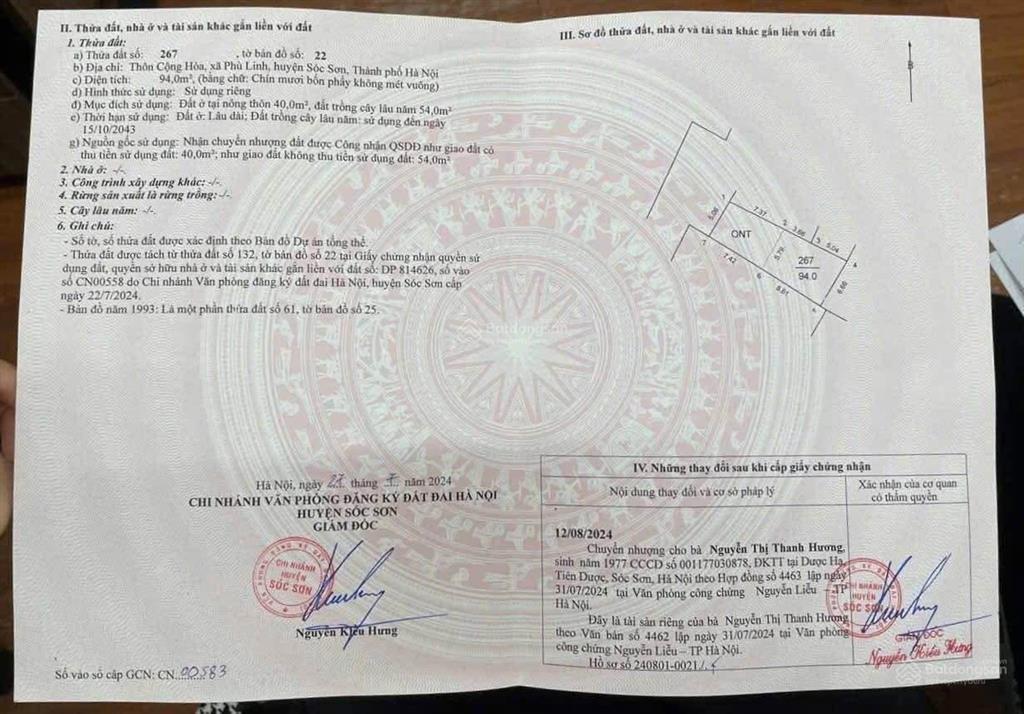 II. Thửa đất, nhà ở và tài sản khác gắn liền với đất
1. Thửa đất:
a) Thửa đất số: 267 , tờ bản đồ số: 22
b) Địa chỉ: Thôn Cộng Hòa, xã Phù Linh, huyện Sóc Sơn, Thành phố Hà Nội
c) Diện tích: 94,0m², (bằng chữ: Chín mươi bốn phẩy không mét vuông)
d) Hình thức sử dụng: Sử dụng riêng
đ) Mục đích sử dụng: Đất ở tại nông thôn 40,0m², đất trồng cây lâu năm 54,0m²
e) Thời hạn sử dụng: Đất ở: Lâu dài; Đất trồng cây lâu năm: sử dụng đến ngày
15/10/2043
g) Nguồn gốc sử dụng: Nhận chuyển nhượng đất được Công nhận QSDĐ như giao đất có
thu tiền sử dụng đất: 40,0m²; như giao đất không thu tiền sử dụng đất: 54,0m²
2. Nhà ở: -/-
3. Công trình xây dựng khác: -/-
4. Rừng sản xuất là rừng trồng: -/-
5. Cây lâu năm: -/-
6. Ghi chú:
- Số tờ, số thửa đất được xác định theo Bản đồ Dự án tổng thể.
- Thửa đất được tách từ thửa đất số 132, tờ bản đồ số 22 tại Giấy chứng nhận quyền sử
dụng đất, quyền sở hữu nhà ở và tài sản khác gắn liền với đất số: DP 814626, số vào
sổ CN00558 do Chi nhánh Văn phòng đăng ký đất đai Hà Nội, huyện Sóc Sơn cấp
ngày 22/7/2024.
- Bản đồ năm 1993: Là một phần thửa đất số 61, tờ bản đồ số 25.
Hà Nội, ngày tháng năm 2024
CHI NHÁNH VĂN PHÒNG ĐĂNG KÝ ĐẤT ĐAI HÀ NỘI
HUYỆN SÓC SƠN
GIÁM ĐỐC
CHI NHÁNH
HUYỆN
SÓC SƠN
Nguyễn Kiều Hưng
Số vào sổ cấp GCN: CN 00583
III. Sơ đồ thửa đất, nhà ở và tài sản khác gắn liền với đất
B
1
7.37
2
3.66
3
5.04
4
5.06
ONT
5.79
267
94.0
6.66
7
7.42
6
8.81
Batdongsan
IV. Những thay đổi sau khi cấp giấy chứng nhận
Nội dung thay đổi và cơ sở pháp lý
Xác nhận của cơ quan
có thẩm quyền
12/08/2024
Chuyển nhượng cho bà Nguyễn Thị Thanh Hương,
sinh năm 1977 CCCD số 001177030878, ĐKTT tại Dược Hạ,
Tiên Dược, Sóc Sơn, Hà Nội theo Hợp đồng số 4463 lập ngày
31/07/2024 tại Văn phòng công chứng Nguyễn Liễu – TP
Hà Nội.
Đây là tài sản riêng của bà Nguyễn Thị Thanh Hương
theo Văn bản số 4462 lập ngày 31/07/2024 tại Văn phòng
công chứng Nguyễn Liễu – TP Hà Nội.
Hồ sơ số 240801-0021
CHI NHÁNH
HUYỆN
SÓC SƠN
GIÁM ĐỐC
Nguyễn Kiều Hưng
Batdongsan